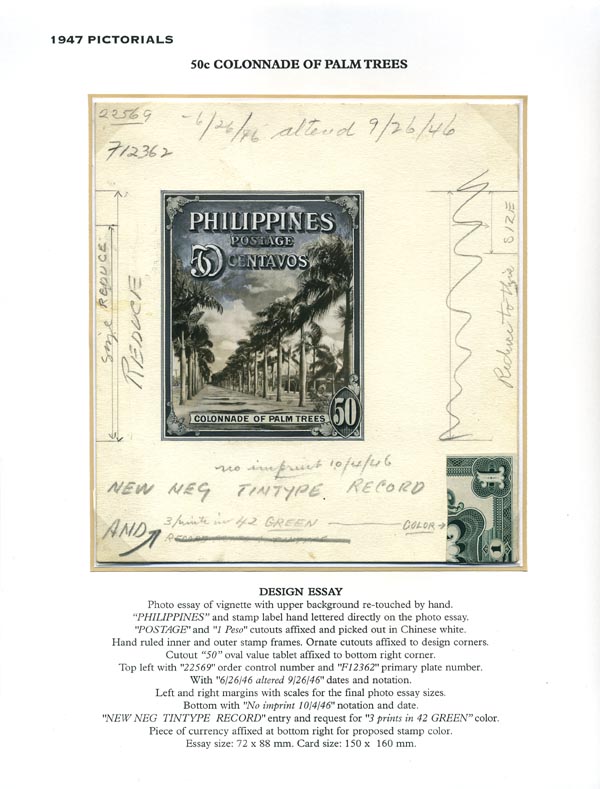 1947 PICTORIALS
50c COLONNADE OF PALM TREES
22569
-6/26/46 altered 9/26/46
712362
PHILIPPINES
POSTAGE
50 CENTAVOS
COLONNADE OF PALM TREES
50
Size REDUCE
REDUCE
SIZE
Reduce to this
no imprint 10/4/46
NEW NEG TINTYPE RECORD
AND 3 prints in 42 GREEN COLOR
1
DESIGN ESSAY
Photo essay of vignette with upper background re-touched by hand.
"PHILIPPINES" and stamp label hand lettered directly on the photo essay.
"POSTAGE" and "1 Peso" cutouts affixed and picked out in Chinese white.
Hand ruled inner and outer stamp frames. Ornate cutouts affixed to design corners.
Cutout "50" oval value tablet affixed to bottom right corner.
Top left with "22569" order control number and "F12362" primary plate number.
With "6/26/46 altered 9/26/46" dates and notation.
Left and right margins with scales for the final photo essay sizes.
Bottom with "No imprint 10/4/46" notation and date.
"NEW NEG TINTYPE RECORD" entry and request for "3 prints in 42 GREEN" color.
Piece of currency affixed at bottom right for proposed stamp color.
Essay size: 72 x 88 mm. Card size: 150 x 160 mm.